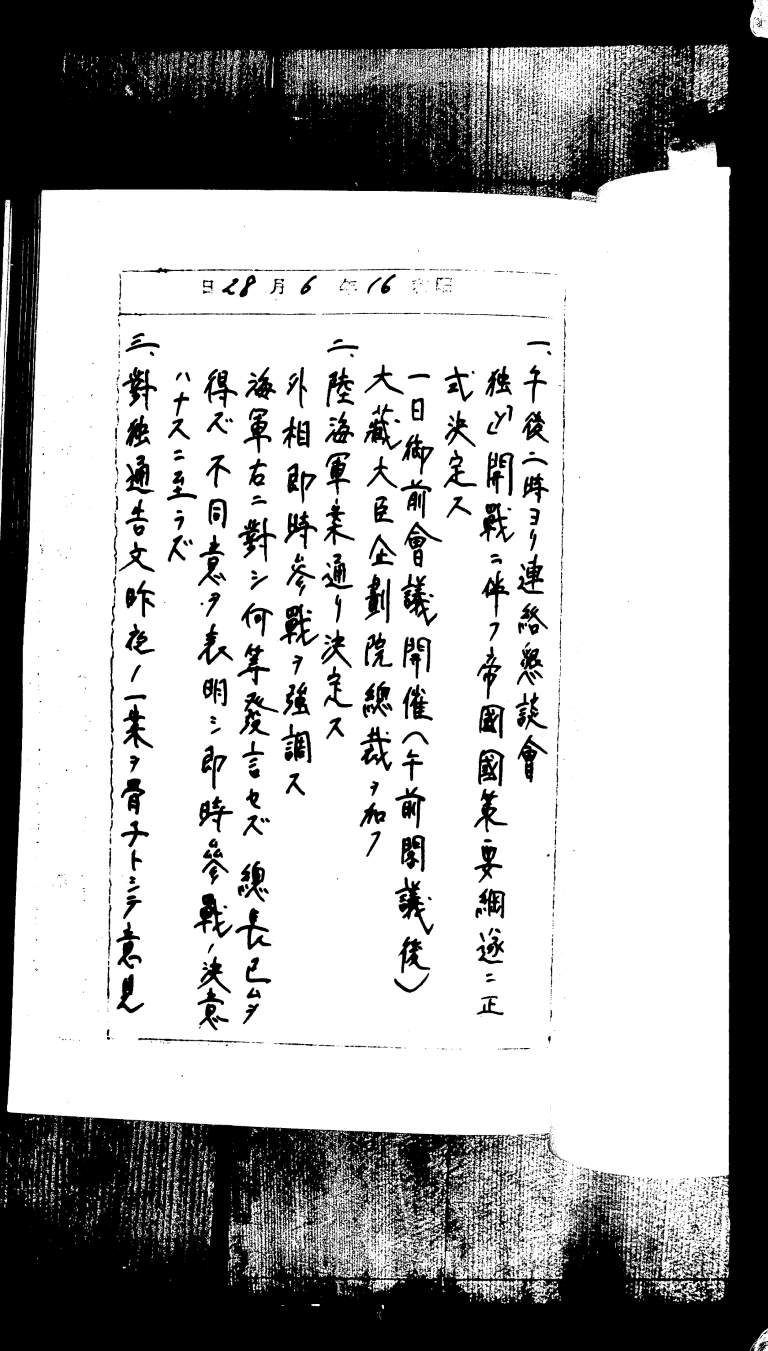 昭和16年6月28日
一、午後二時ヨリ連絡懇談會
独「ソ」開戰ニ伴フ帝國國策要綱遂ニ正
式決定ス
一日御前會議開催(午前閣議後)
大藏大臣企劃院總裁ヲ加フ
二、陸海軍案通リ決定ス
外相即時參戰ヲ強調ス
海軍右ニ對シ何等發言セズ 總長已ムヲ
得ズ不同意ヲ表明シ即時參戰ノ決意
ハナスニ至ラズ
三、對独通告文昨夜ノ一案ヲ骨子トシテ意見